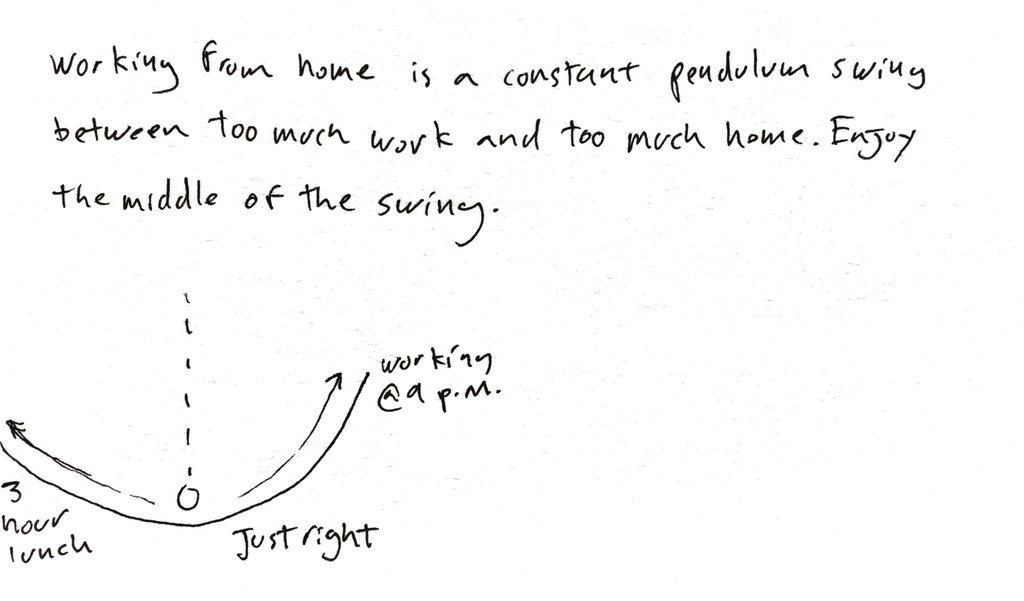 Working from home is a constant pendulum swing
between too much work and too much home. Enjoy
the middle of the swing.
working
@9 p.m.
3
hour
lunch
Just right